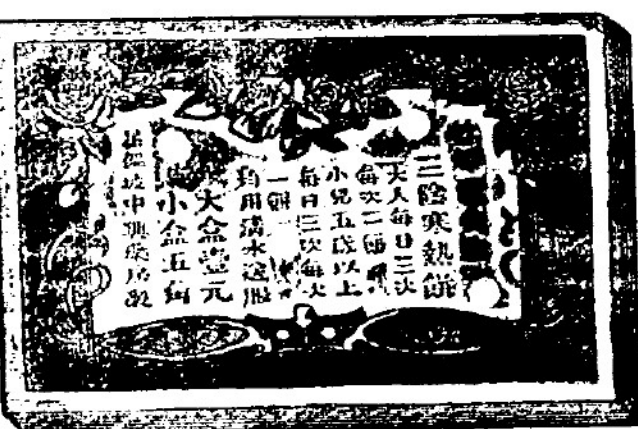 三陰寒熱餅
大人每日三次
每次二餅
小兒五歲以上
每日三次每次
一餅
均用清水送服
大盒壹元
小盒五角
星坡中興藥房製